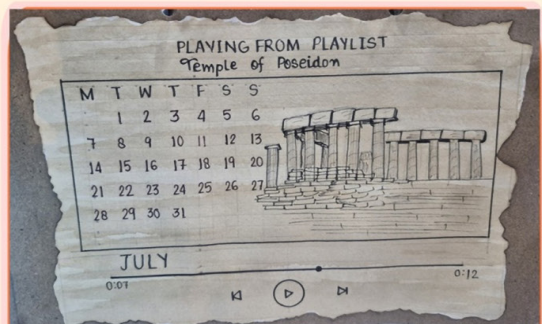 PLAYING FROM PLAYLIST
Temple of Poseidon
M T W T F S S
1 2 3 4 5 6
7 8 9 10 11 12 13
14 15 16 17 18 19 20
21 22 23 24 25 26 27
28 29 30 31
JULY
0:07 0:12